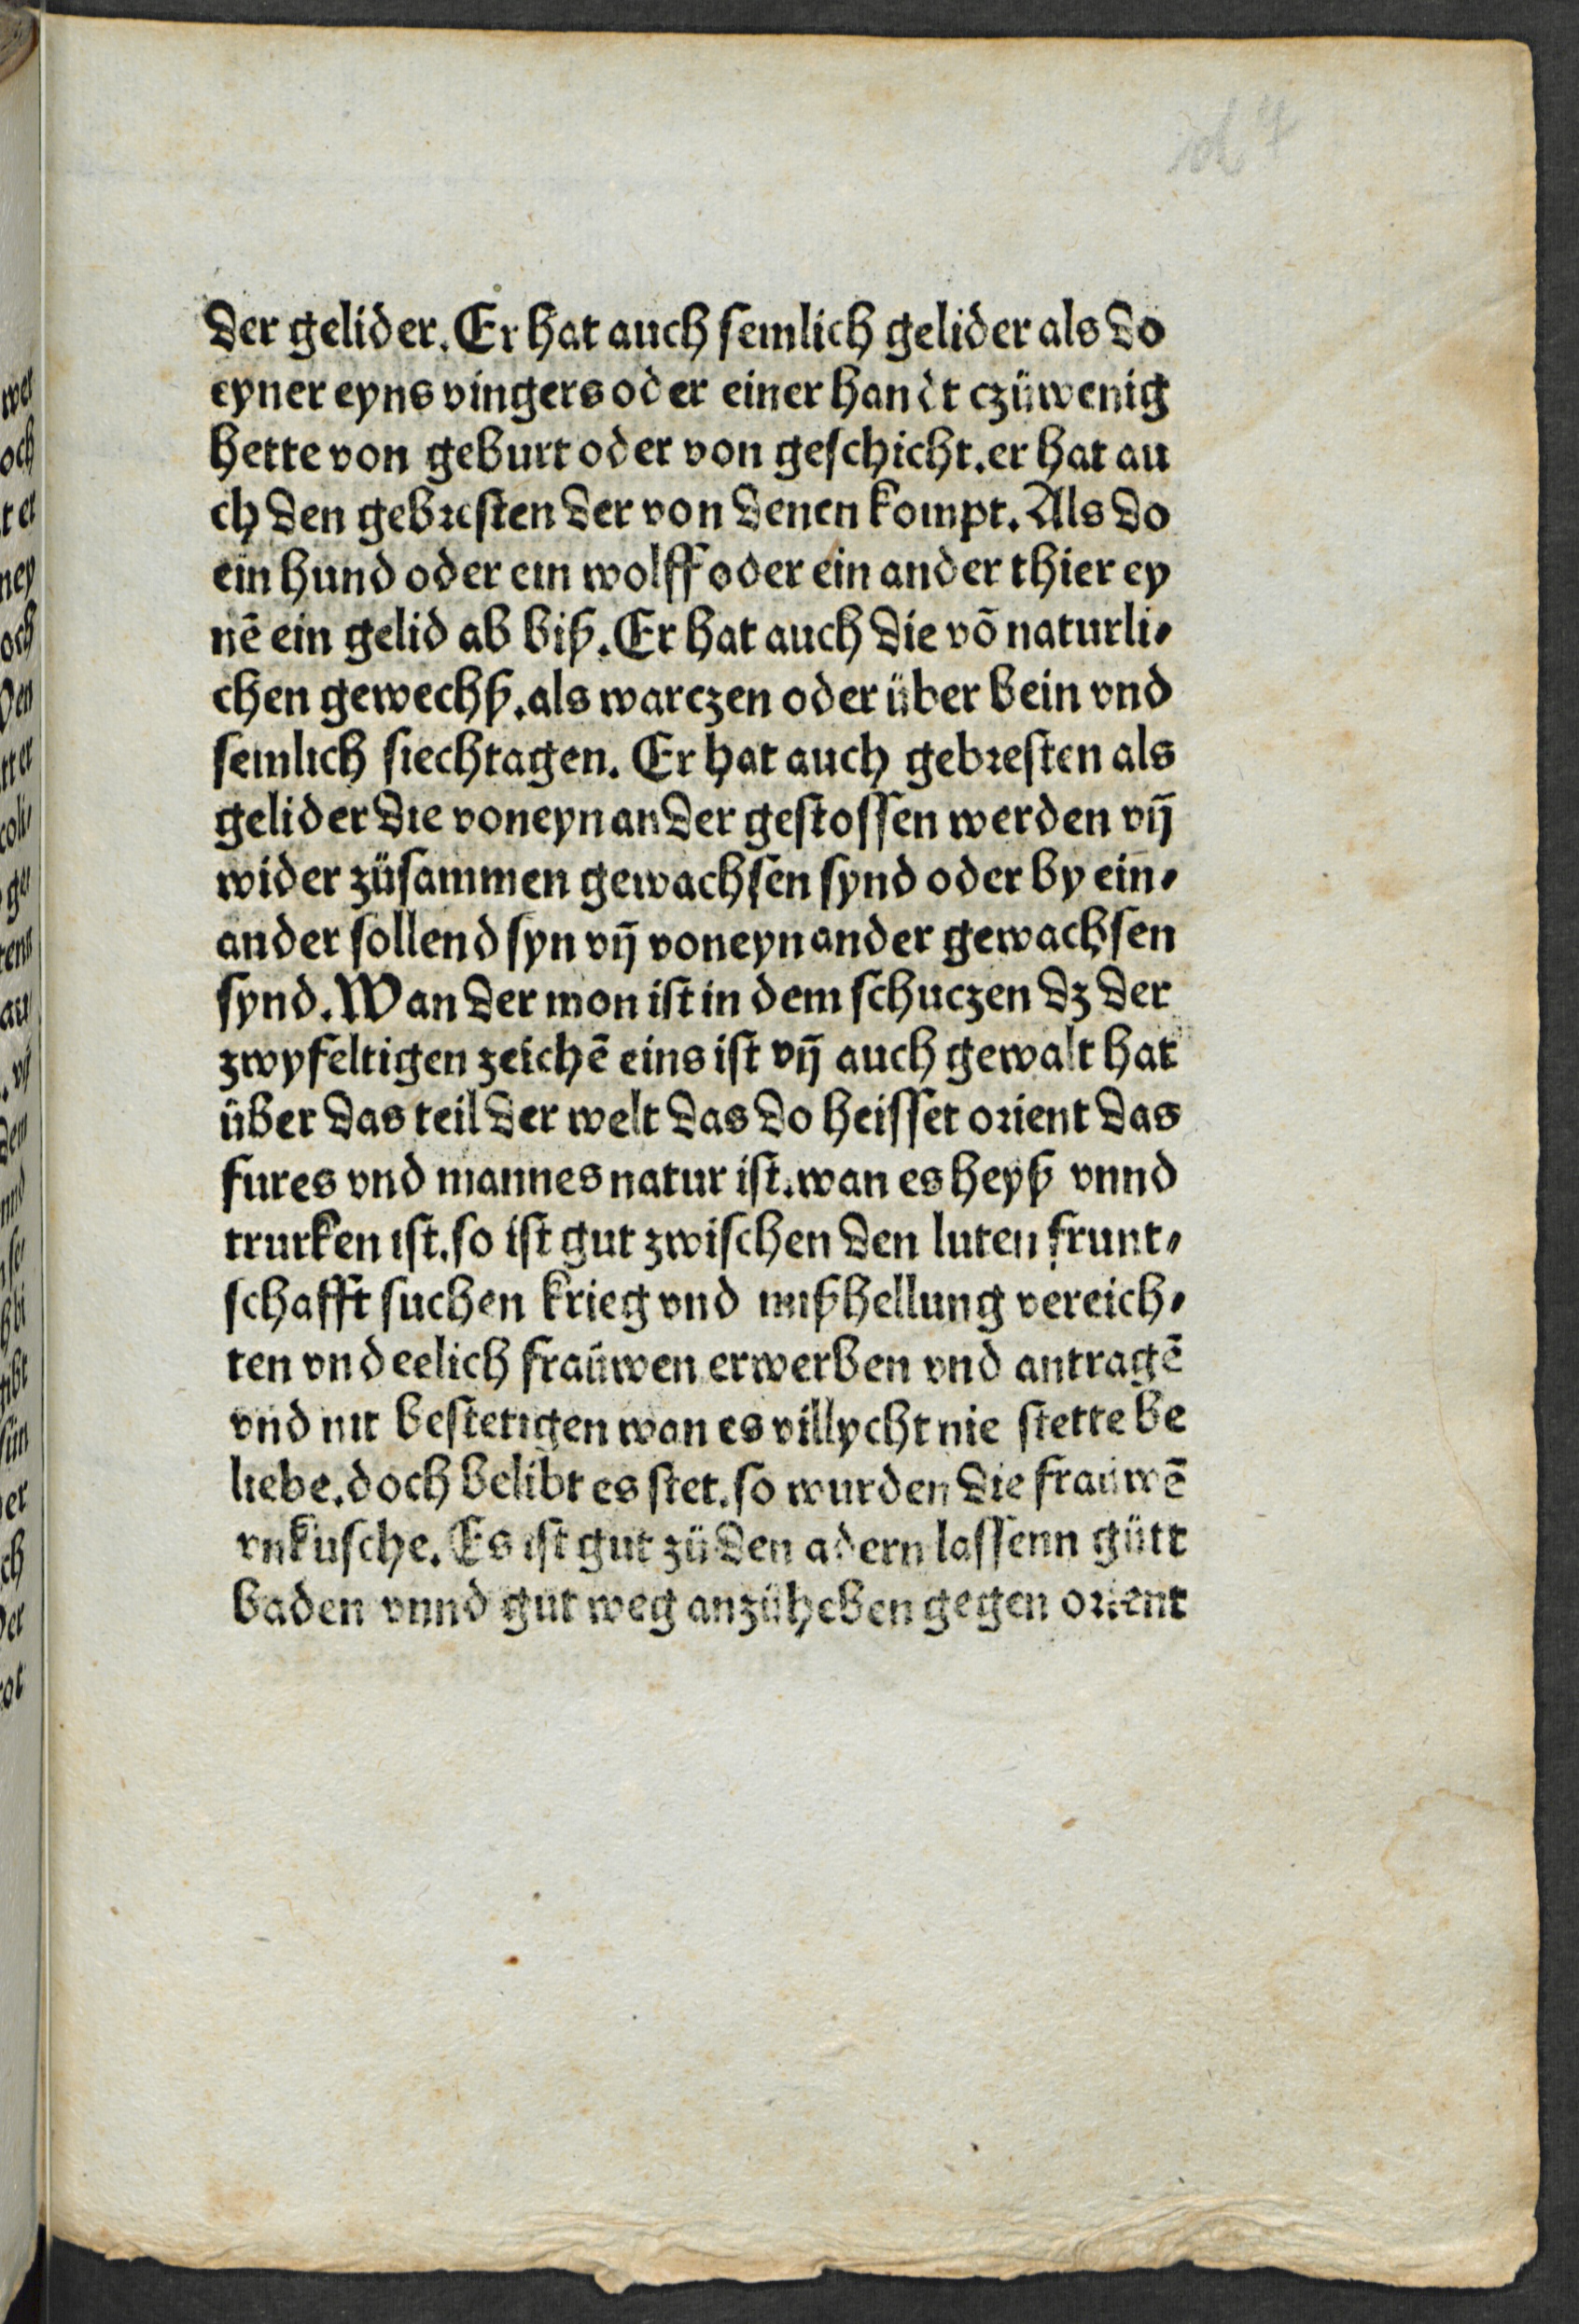 der gelider. Er hat auch semlich gelider als do
eyner eyns vingers oder einer handt czüwenig
hette von geburt oder von geschicht. er hat au
ch den gebresten der von denen kompt. Als do
ein hund oder ein wolff oder ein ander thier ey
nē ein gelid ab biß. Er hat auch die vō naturli⸗
chen gewechß. als warczen oder über bein vnd
semlich siechtagen. Er hat auch gebresten als
gelider die voneynander gestossen werden vñ
wider züsammen gewachsen synd oder by ein⸗
ander sollend syn vñ voneynander gewachsen
synd. Wan der mon ist in dem schuczen dz der
zwyfeltigen zeichē eins ist vñ auch gewalt hat
über das teil der welt das do heisset orient das
fures vnd mannes natur ist. wan es heyß vnnd
trurken ist. so ist gut zwischen den luten frunt⸗
schafft suchen krieg vnd mißhellung vereich⸗
ten vnd eelich fraüwen erwerben vnd antragē
vnd nit bestetigen wan es villycht nie stette be
liebe. doch belibt es stet. so wurden die fraüwē
vnkusche. Es ist gut zü den adern lassenn gütt
baden vnnd gut weg anzüheben gegen orient